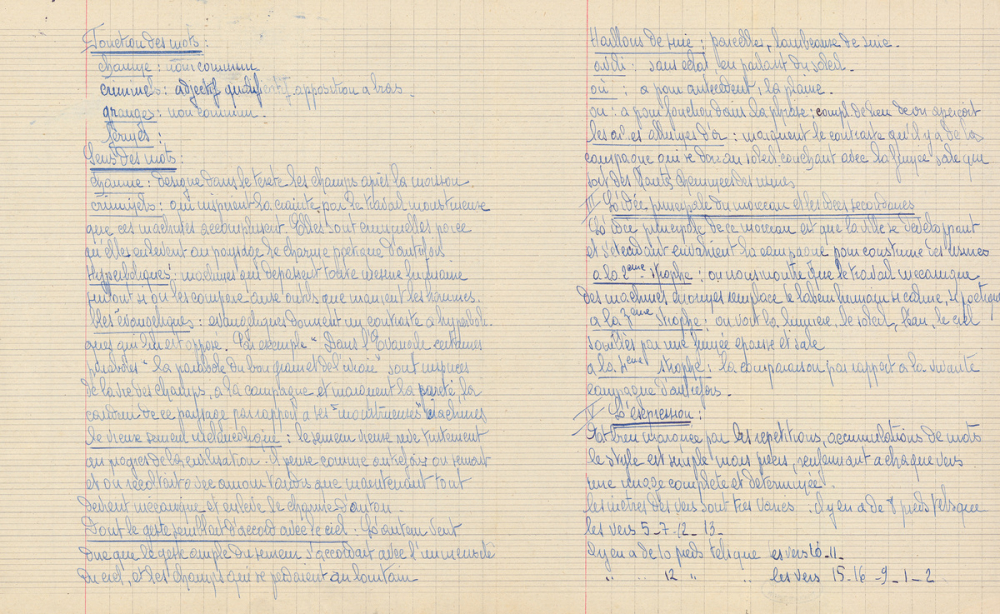 Fonction des mots :
change : nom commun
criminels : adjectif qualificatif apposition à bras.
granges : nom commun.
fermes :
Sens des mots :
chaume : désigne dans le texte les champs après la moisson.
criminels : qui inspirent la crainte par le travail monstrueux
que ces machines accomplissent. Elles sont criminelles parce
qu'elles enlèvent au paysage le charme poétique d'autrefois
Hyperboliques : machines qui dépassent toute mesure humaine
surtout si on les compare aux outils que manient les hommes.
blés évangéliques : évangéliques donnent un contraste à hyperboli-
ques qui lui est opposé. Par exemple "Dans l'Evangile certaines
paraboles "la parabole du bon grain et de l'ivraie" sont inspirées
de la vie des champs, à la campagne et marquent la pureté, la
de ce paysage par rapport à ses "monstrueuses" machines
le vieux semeur mélancolique : le semeur vieux rêve tristement
au progrès de la civilisation. Il pense comme autrefois on semait
et on récoltait avec amour tandis que maintenant tout
devient mécanique et enlève le charme d'antan.
Dont le geste semblait d'accord avec le ciel : L'auteur veut
dire que le geste ample du semeur s'accordait avec l'immensité
du ciel, et les champs qui se perdaient au lointain
Haillons de suie : parcelles, lambeaux de suie.
avili : sans éclat en parlant du soleil.
où : a pour antécédent, la plaine.
où : a pour fonction dans la phrase ; compl. de lieu de on aperçoit
les or et ailuyes d'or : marquent le contraste qu'il y a de la
campagne qui se dore au soleil couchant avec la fumée sale qui
sort des hautes cheminées des usines
III La idée principale du morceau et les idées secondaires
La idée principale de ce morceau est que la ville se développant
et s'étendant envahirent la campagne pour construire des usines
à la 2ème strophe : on nous montre que le travail mécanique
des machines rouges remplace le labeur humain si calme, si poétique
à la 3ème strophe : on voit la lumière, le soleil, l'eau, le ciel
souillés par une fumée épaisse et sale
à la 4ème strophe : la comparaison par rapport à la vivante
campagne d'autrefois.
IV L'expression :
Est bien marquée par les répétitions, accumulations de mots
le style est simple mais précis, renfermant à chaque vers
une image complète et déterminée.
les mètres des vers sont très variés : il y en a de 8 pieds tels que
les vers 5-7-12-13-
il y en a de 10 pieds tels que les vers 10-11-
" .. 12 " .. les vers 15-16-9-1-2